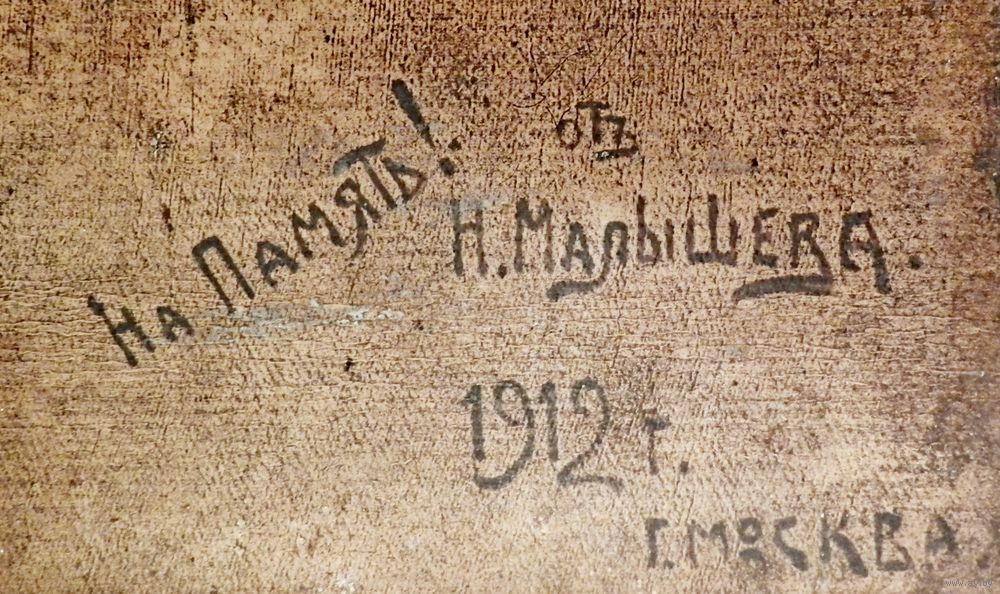 На Память!
отъ
Н. Малышева.
1912 г.
г. Москва.
www.ay.by